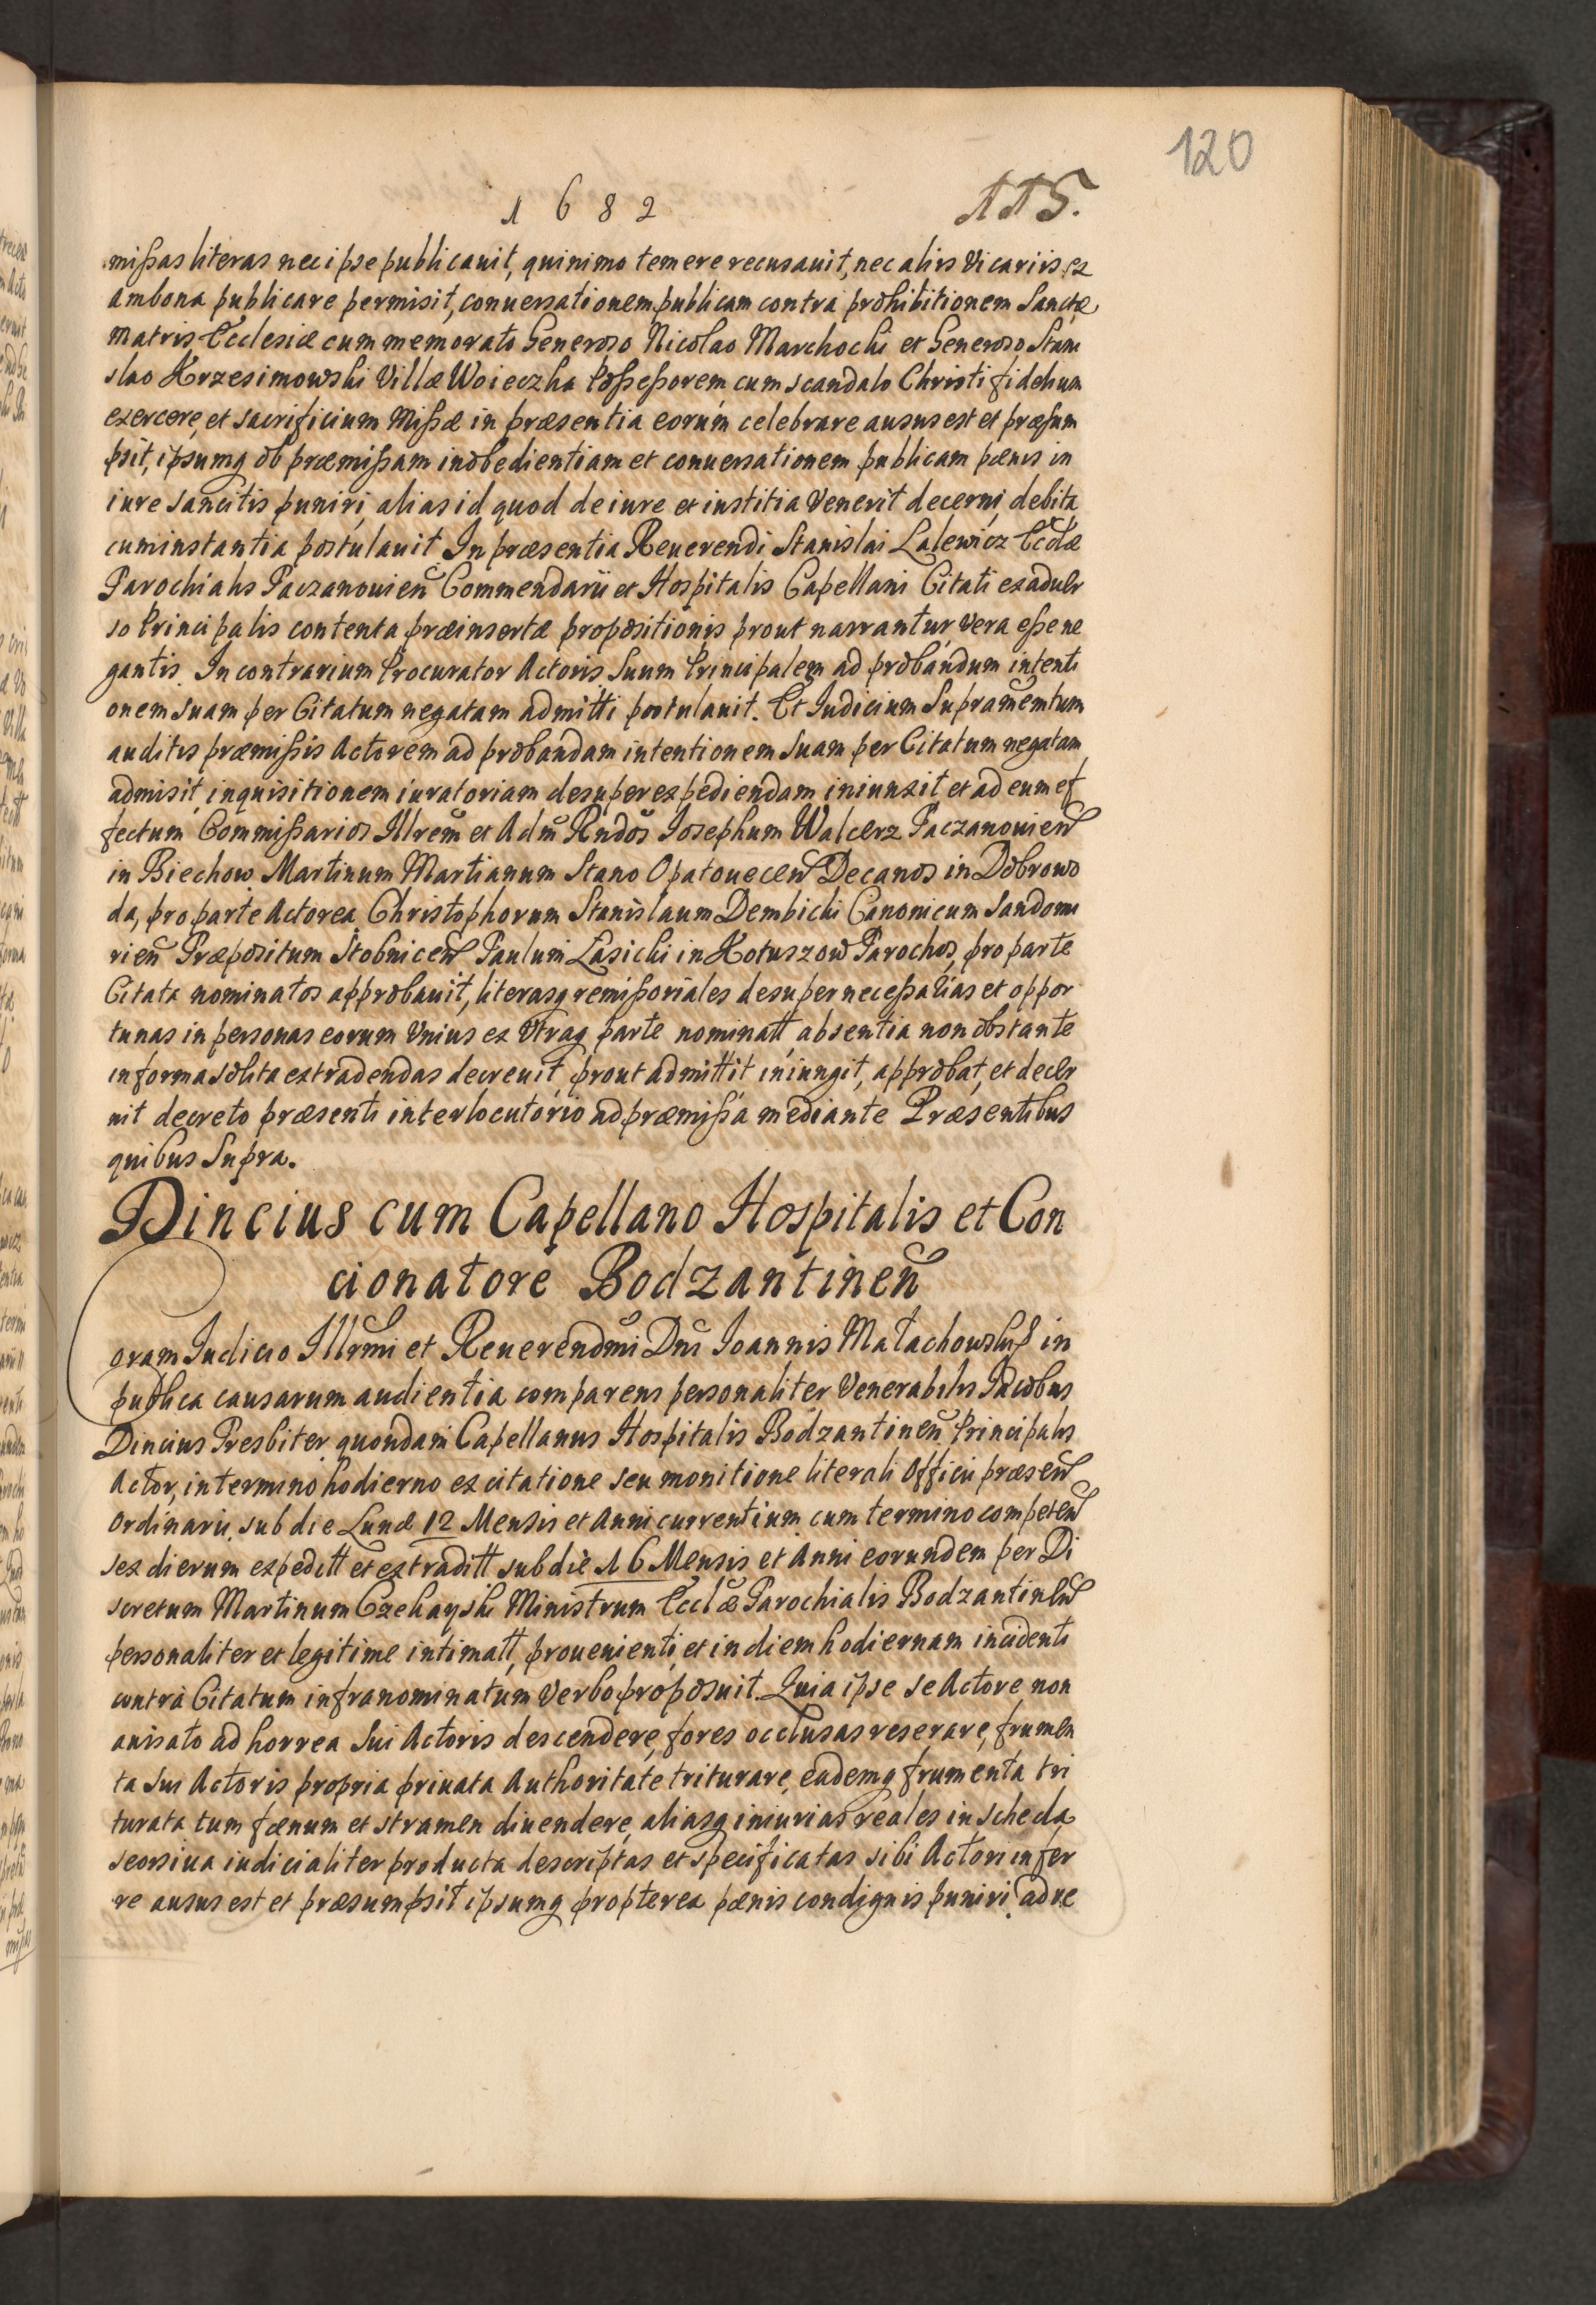 120
1682
115.
mißas literas nec ipse publicauit, quinimo temere recusauit, nec alijs Vicarijs ex
ambona publicare permisit, conuersationem publicam contra prohibitionem Sanctæ
matris Ecclesiæ cum memorato Generoso Nicolao Marchocki et Generoso Stani
slao Krzesimowski Villæ Woieczka Poßeßorem cum scandalo Christi fidelium
exercere, et sacrificium Mißæ in præsentia eorum celebrare ausus est et præsum
psit, ipsumq ob præmißam inobedientiam et conuersationem publicam pænis in
iure sancitis puniri, alias id quod de iure et iustitia Venerit decerni, debita
cum instantia postulauit In præsentia Reuerendi Stanislai Lalewicz Eccłæ
Parochialis Paczanouień Commendarii et Hospitalis Capellani Citati ex aduer
so Principalis contenta præinsertæ propositionis prout narrantur, Vera eße ne
gantis. In contrarium Procurator Actoris Suum Principalem ad probandum intenti
onem suam per Citatum negatam admitti postulauit. Et Iudicium Supramemtum
auditis præmißis Actorem ad probandam intentionem Suam per Citatum negatam
admisit, inquisitionem iuratoriam desuper expediendam iniunxit et ad eum ef
fectum Commißarios Illrem et Adm Rndos Iosephum Walcerz Paczanouień
in Biechow Martinum Martianum Stano Opatouecen Decanos in Dobrowo
da, pro parte Actorea Christophorum Stanislaum Dembicki Canonicum Sandomi
rień Præpositum Stobnicen Paulum Lasicki in Kotuszow Parochos, pro parte
Citata nominatos approbauit, literasq remißoriales desuper neceßarias et oppor
tunas in personas eorum Vnius ex Vtraq parte nominatt absentia non obstante
in forma solita extradendas decreuit, prout admittit iniungit, approbat, et decer
nit decreto præsenti interlocutorio ad præmißa mediante Præsentibus
quibus Supra.
Dincius cum Capellano Hospitalis et Con
cionatore Bodzantineń
Coram Iudicio Illrmi et Reuerendmi Dni Ioannis Małachowski in
publica causarum audientia comparens personaliter Venerabilis Iacobus
Dincius Presbiter quondam Capellanus Hospitalis Bodzantineń Principalis
Actor, in termino hodierno ex citatione seu monitione literali Officii præsen
Ordinarii, sub die Lunæ 12 Mensis et Anni currentium cum termino competen
sex dierum expeditt et extraditt sub die 16 Mensis et Anni eorundem per Di
scretum Martinum Czekayski Ministrum Ecclæ Parochialis Bodzantinen
personaliter et legitime intimatt, prouenienti, et in diem hodiernam incidenti
contra Citatum infranominatum Verbo proposuit. Quia ipse se Actore non
auisato ad horrea Sui Actoris descendere, fores occlusas reserare, frumen
ta Sui Actoris propria priuata Authoritate triturare, eademq frumenta tri
turata tum fænum et stramen diuendere, aliasq iniurias reales in scheda
seorsiua iudicialiter producta descriptas et specificatas sibi Actori infer
re ausus est et præsumpsit ipsumq propterea pænis condignis puniri, ad re